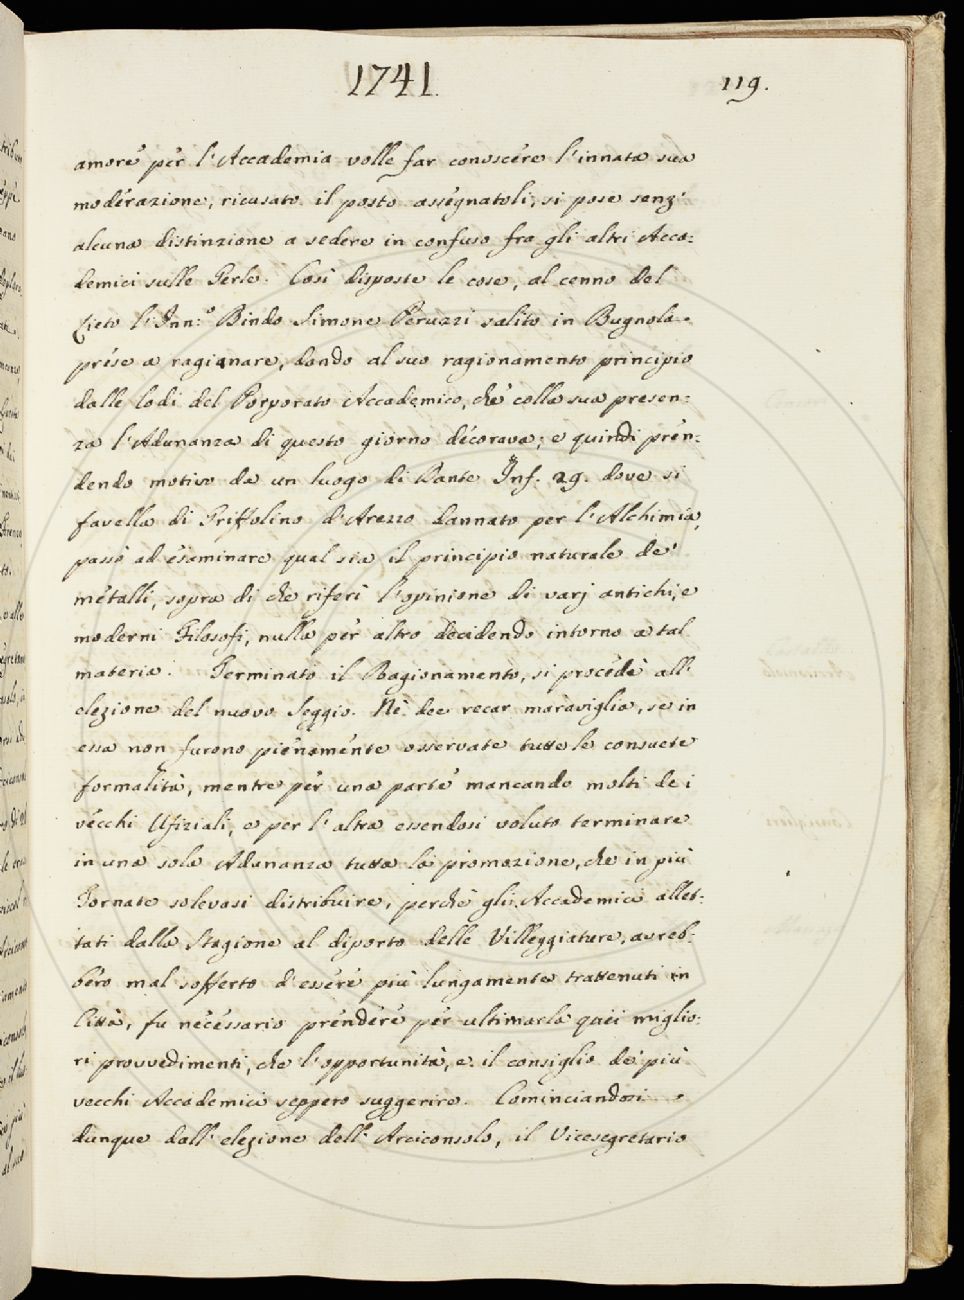 1741.
119.
amore per l'Accademia volle far conoscere l'innata sua
moderazione, ricusato il posto assegnatoli, si pose senz'
alcuna distinzione a sedere in confuso fra gli altri Acca:
demici sulle Gerle. Così disposte le cose, al cenno del
Cieto l'Inn:º Bindo Simone Peruzzi salito in Bugnola
prese a ragionare, dando al suo ragionamento principio
dalle lodi del Porporato Accademico, che colla sua presen:
za l'Adunanza di questo giorno decorava; e quindi pren:
dendo motivo da un luogo di Dante Inf. 29. dove si
favella di Griffolino d'Arezzo dannato per l'Alchimia,
passò ad esaminare qual sia il principio naturale de'
metalli, sopra di che riferì l'opinione di varj antichi, e
moderni Filosofi, nulla per altro decidendo intorno a tal
materia. Terminato il Ragionamento, si procedè all'
elezione del nuovo Seggio. Nè dee recar maraviglia, se in
essa non furono pienamente osservate tutte le consuete
formalità, mentre per una parte mancando molti dei
vecchi Ufiziali, e per l'altra essendosi voluto terminare
in una sola Adunanza tutta la promozione, che in più
Tornate solevasi distribuire, perchè gli Accademici allet:
tati dalla Stagione al diporto delle Villeggiature, avreb:
bero mal sofferto d'essere più lungamente trattenuti in
Città, fu necessario prendere per ultimarla quei miglio:
ri provvedimenti, che l'opportunità, e il consiglio de' più
vecchi Accademici seppero suggerire. Cominciandosi
dunque dall'elezione dell'Arciconsolo, il Vicesegretario